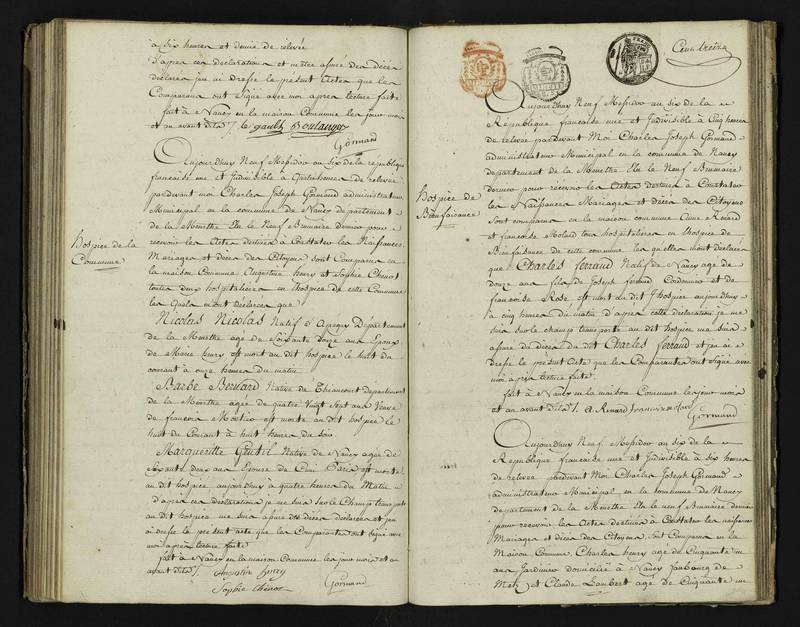 à Six heures et demie de relevée
d'après ces declaration et m'être assuré des décès
déclarés j'ai dressé le présent Acte que les
Comparants ont signé avec moi après lecture faite
fait à Nancy en la maison Commune les jour mois
et an avant dits /. le gault Boulanger
Gormand
Aujourdhuy Neuf Messidor an six de la republique
francaise une et Indivisible à quatre heures de relevée
pardevant moi Charles Joseph Gormand administrateur
Municipal en la commune de Nancy departement
de la Meurthe Elu le Neuf Brumaire dernier pour
recevoir les Actes destinés à Constater les Naissances
Mariages et décès des Citoyens Sont Comparus en
la maison Commune Augustine henry et Sophie Chenot
toutes deux hospitalières en l'hospice de cette Commune
les Quels m'ont déclarés que
Hospice de la
Commune
Nicolas Nicolas Natif d' Departement
de la Meurthe age de Soixante douze ans Epoux
de Marie henry est mort au dit hospice le huit du
courant à onze heures du matin
Barbe Bernard Native de Thiaucourt Departement
de la Meurthe agée de quatre Vingt Sept ans Veuve
de francois est morte au dit hospice le
huit du Courant à huit heures du soir
Margueritte Gentil Native de Nancy agée de
Soixante deux ans Epouse de Paris est morte
au dit hospice aujourdhuy à quatre heures du Matin
d'après ces déclaration je me suis sur le Champ transporté
au dit hospice me suis assuré des décès déclarés et j'en
ai dressé le présent acte que les Comparantes ont signé avec
moi après lecture faite
fait à Nancy en la maison Commune les jour mois et an
avant dits /. Augustine henry
Sophie Chenot Gormand
Cent treize
Aujourdhuy Neuf Messidor an six de la
République francaise une et Indivisible à Cinq heures
de relevée pardevant Moi Charles Joseph Gormand
administrateur Municipal en la commune de Nancy
departement de la Meurthe Elu le Neuf Brumaire
dernier pour recevoir les Actes destinés à Constater
les Naissances Mariages et décès des Citoyens
Sont comparus en la maison commune Anne Renard
et francoise Molard tous hospitalieres en l'hospice de
Bienfaisance de cette commune les quelles m'ont déclarés
que Charles ferrand Natif de Nancy age de
douze ans fils de Joseph ferrand Cordonnier et de
francoise Rose est mort au dit hospice aujourdhuy
à cinq heures du matin d'après cette déclaration je me
suis sur le champ transporté au dit hospice me suis
assuré du décès du dit Charles ferrand et j'en ai
dressé le présent Acte que les Comparantes ont Signé avec
moi après lecture faite
fait à Nancy en la maison Commune les jour mois
et an avant dits /. A. Renard
Gormand
Hospice de
Bienfaisance
Aujourdhuy Neuf Messidor an six de la
République francaise une et Indivisible à six heures
de relevée pardevant Moi Charles Joseph Gormand
administrateur Municipal en la commune de Nancy
departement de la Meurthe Elu le neuf Brumaire dernier
pour recevoir les Actes destinés à Constater les naissances
Mariages et décès des Citoyens, Sont Comparus en la
Maison Commune, Charles henry age de Cinquante un
ans Jardinier domicilié à Nancy faubourg de
Metz, et Claude Lambert age de Cinquante un